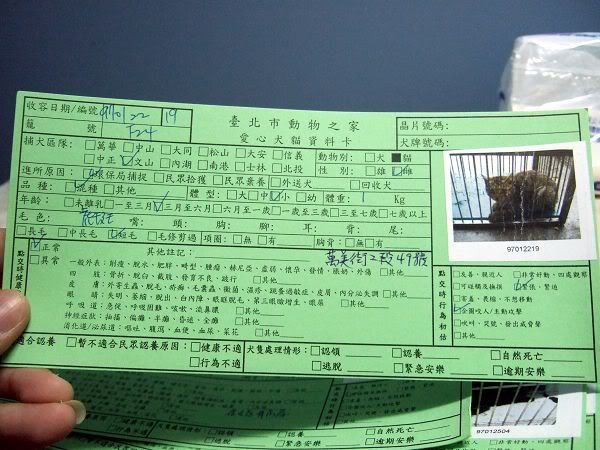 收容日期/編號 97.01.22 19
籠 號 F24
臺北市動物之家
愛心犬貓資料卡
晶片號碼:
犬牌號碼:
捕犬區隊: □萬華 □中山 □大同 □松山 □大安 □信義 動物別: □犬 ■貓
□中正 □文山 □內湖 □南港 □士林 □北投 性 別: □雄 □雌
進所原因: □環保局捕捉 □民眾拾獲 □民眾棄養 □外送犬 □回收犬
品 種: □混種 □其他 體 型: □大 □中 □小 □幼 體重: 1 Kg
年齡: □未離乳 □一至三月 □三月至六月 □六月至一歲 □一歲至三歲 □三至七歲 □七歲以上
毛 色: 嘴: 頭: 胸: 腳: 耳: 背: 尾:
□長毛 □中長毛 □短毛 □毛修剪過 項圈: □無 □有: 胸背: □無 □有:
點交時健康
□正常
□異常
其他註記: 萬美街2段49號
一般外表: 削瘦、脫水、肥胖、畸型、腫瘤、赫尼亞、虛弱、懷孕、發情、脹奶、外傷 □其他
四 肢: 骨折、脫臼、截肢、發育不良、跛行 □其他
皮 膚: 外寄生蟲、脫毛、疥癬、毛囊蟲、黴菌、濕疹、跳蚤過敏症、皮屑、內分泌失調 □其他
眼 睛: 失明、萎縮、脫出、白內障、眼瞼脫毛、第三眼瞼增生、眼屎 □其他
呼 吸 道: 急促、呼吸困難、咳嗽、流鼻膿 □其他
神經症狀: 抽搐、偏癱、半癱、昏迷、全癱 □其他
消化道/泌尿道: 嘔吐、腹瀉、血便、血尿、菜花 □其他
97012219
點交時行為初估
□友善、親近人 □非常好動、四處觀察
□可碰觸及撫摸 □緊張、緊迫
□害羞、畏縮、不想移動
□企圖咬人/主動攻擊
□吠叫、哭號、發出威脅聲
□其他
適合認養 □暫不適合民眾認養原因: □健康不適 犬隻處理情形: □認領 □認養 □自然死亡
□行為不適 □逃脫 □緊急安樂 □逾期安樂
97012504